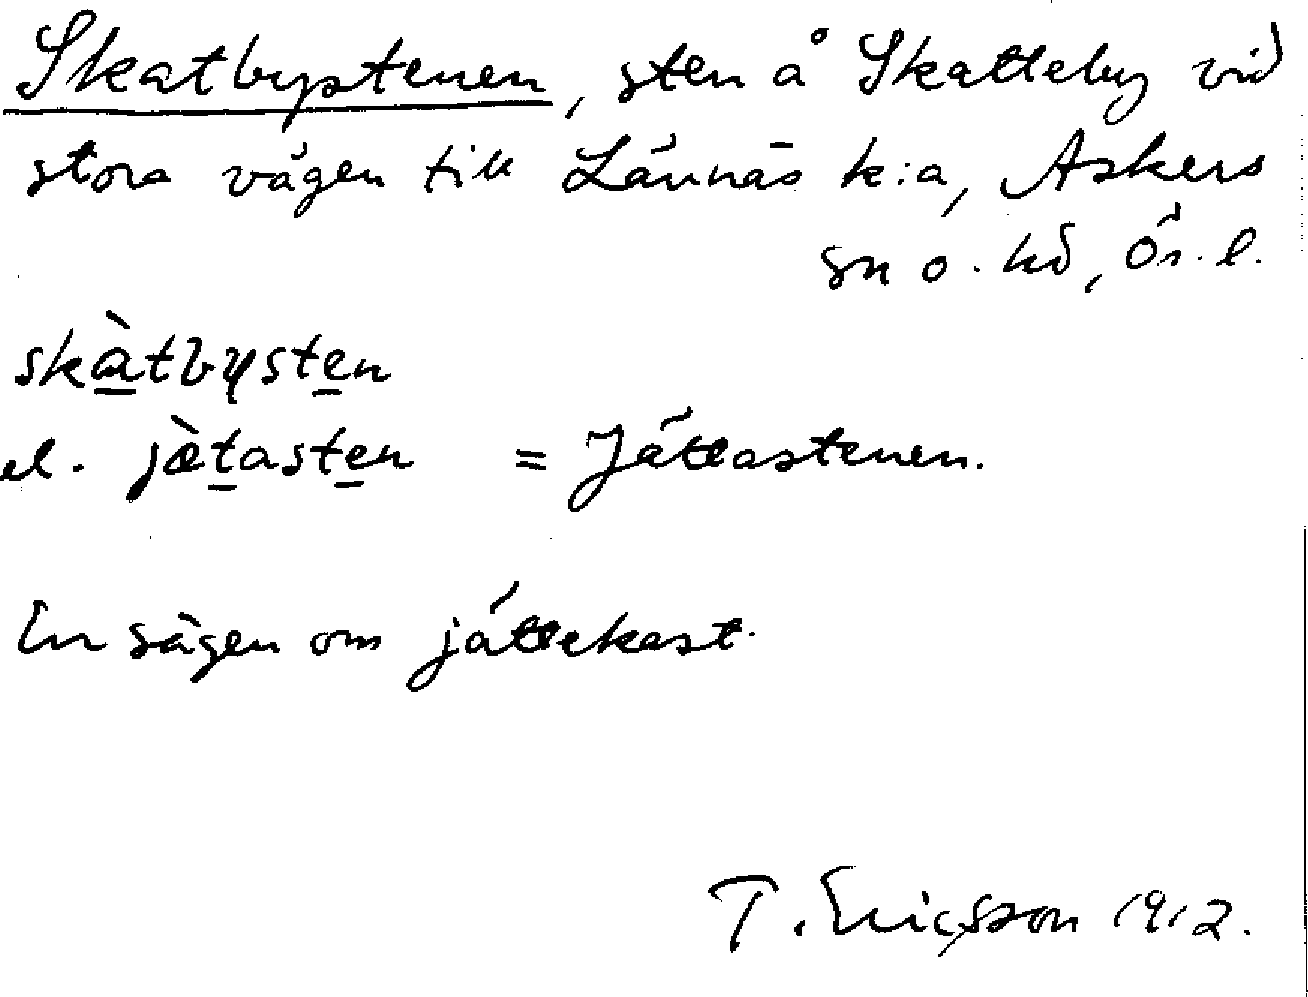 Skatbystenen, sten å Skatteby vid
stora vägen till Lännäs k:a, Askers
sn o. hd, Ör. l.
skàtbysten
el. jætasten = Jättastenen.
En sägen om jättekast.
T. Ericsson 1912.